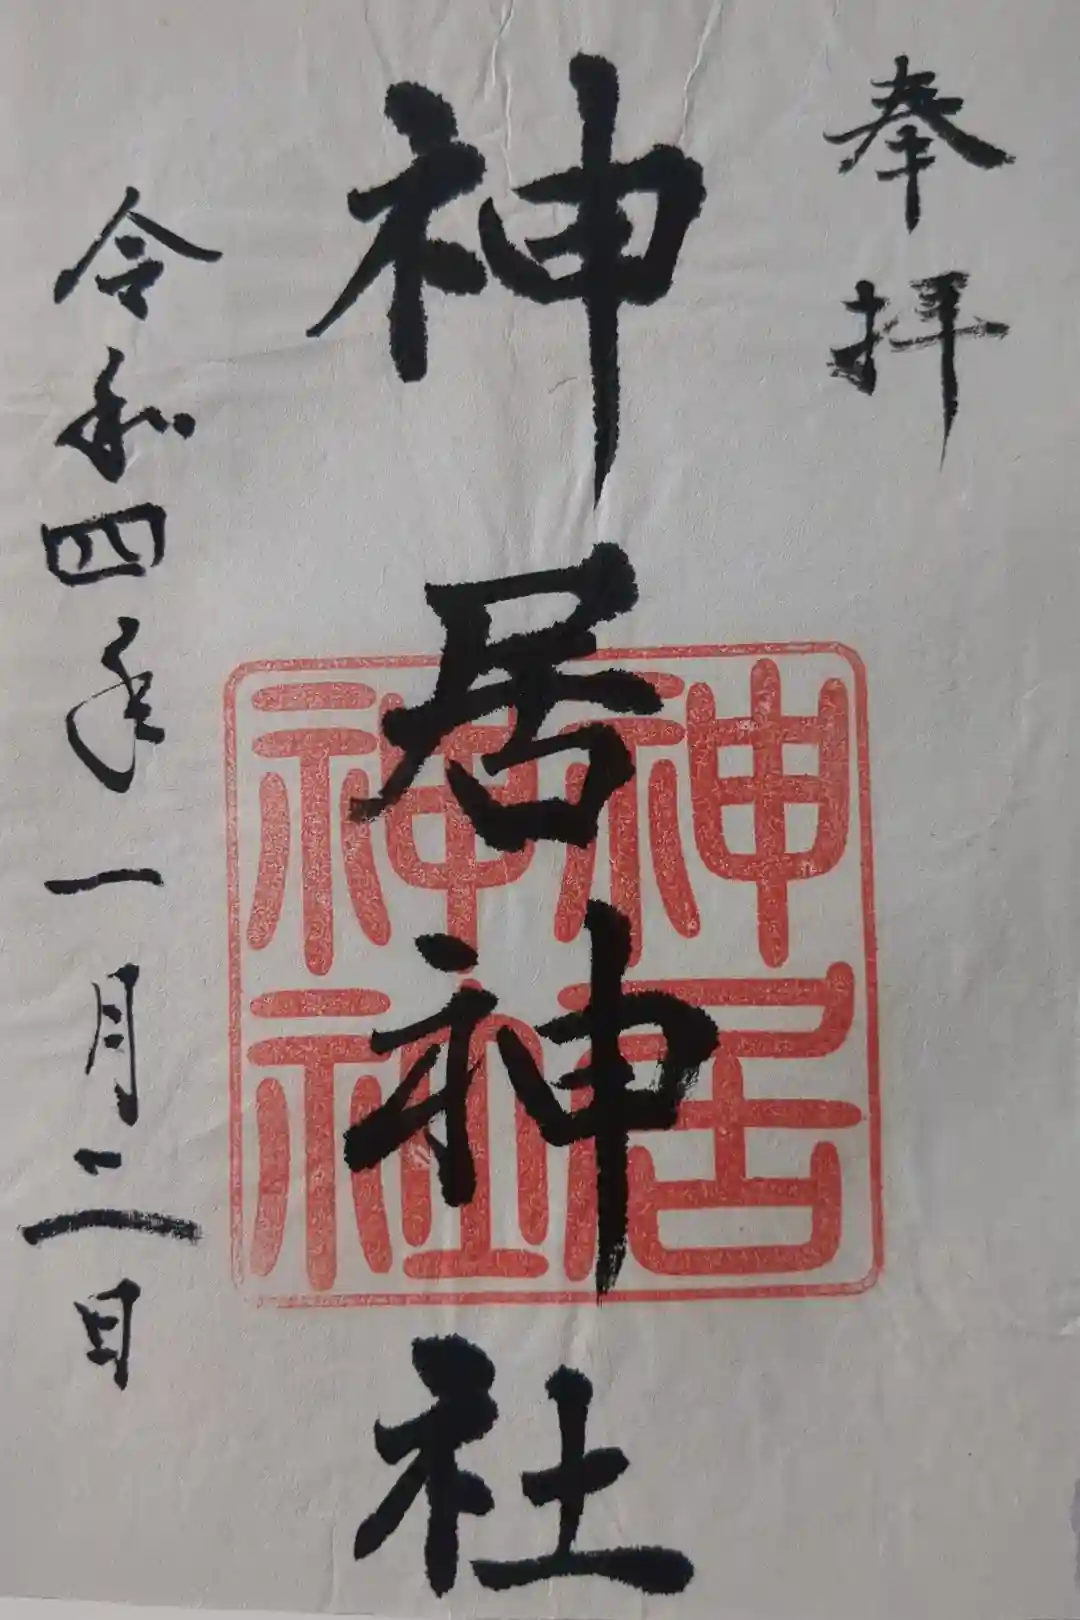 奉拝
神居神社
神居神社
令和四年一月二日